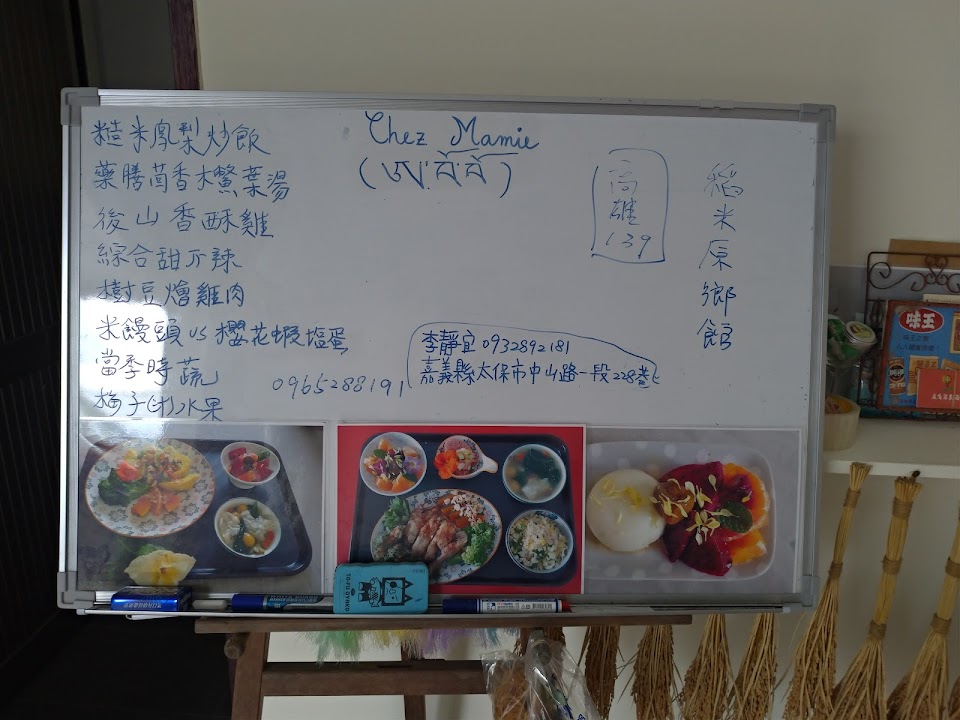 糙米鳳梨炒飯
藥膳茴香木鱉葉湯
後山香酥雞
綜合甜不辣
樹豆燴雞肉
米饅頭 VS 櫻花蝦塩蛋
當季時蔬
梅子(汁)水果
0965288191
Chez Mamie
高雄
139
稻米原鄉館
李靜宜 0932892181
嘉義縣太保市中山路一段228巷
味王
TO-FU OYAKO